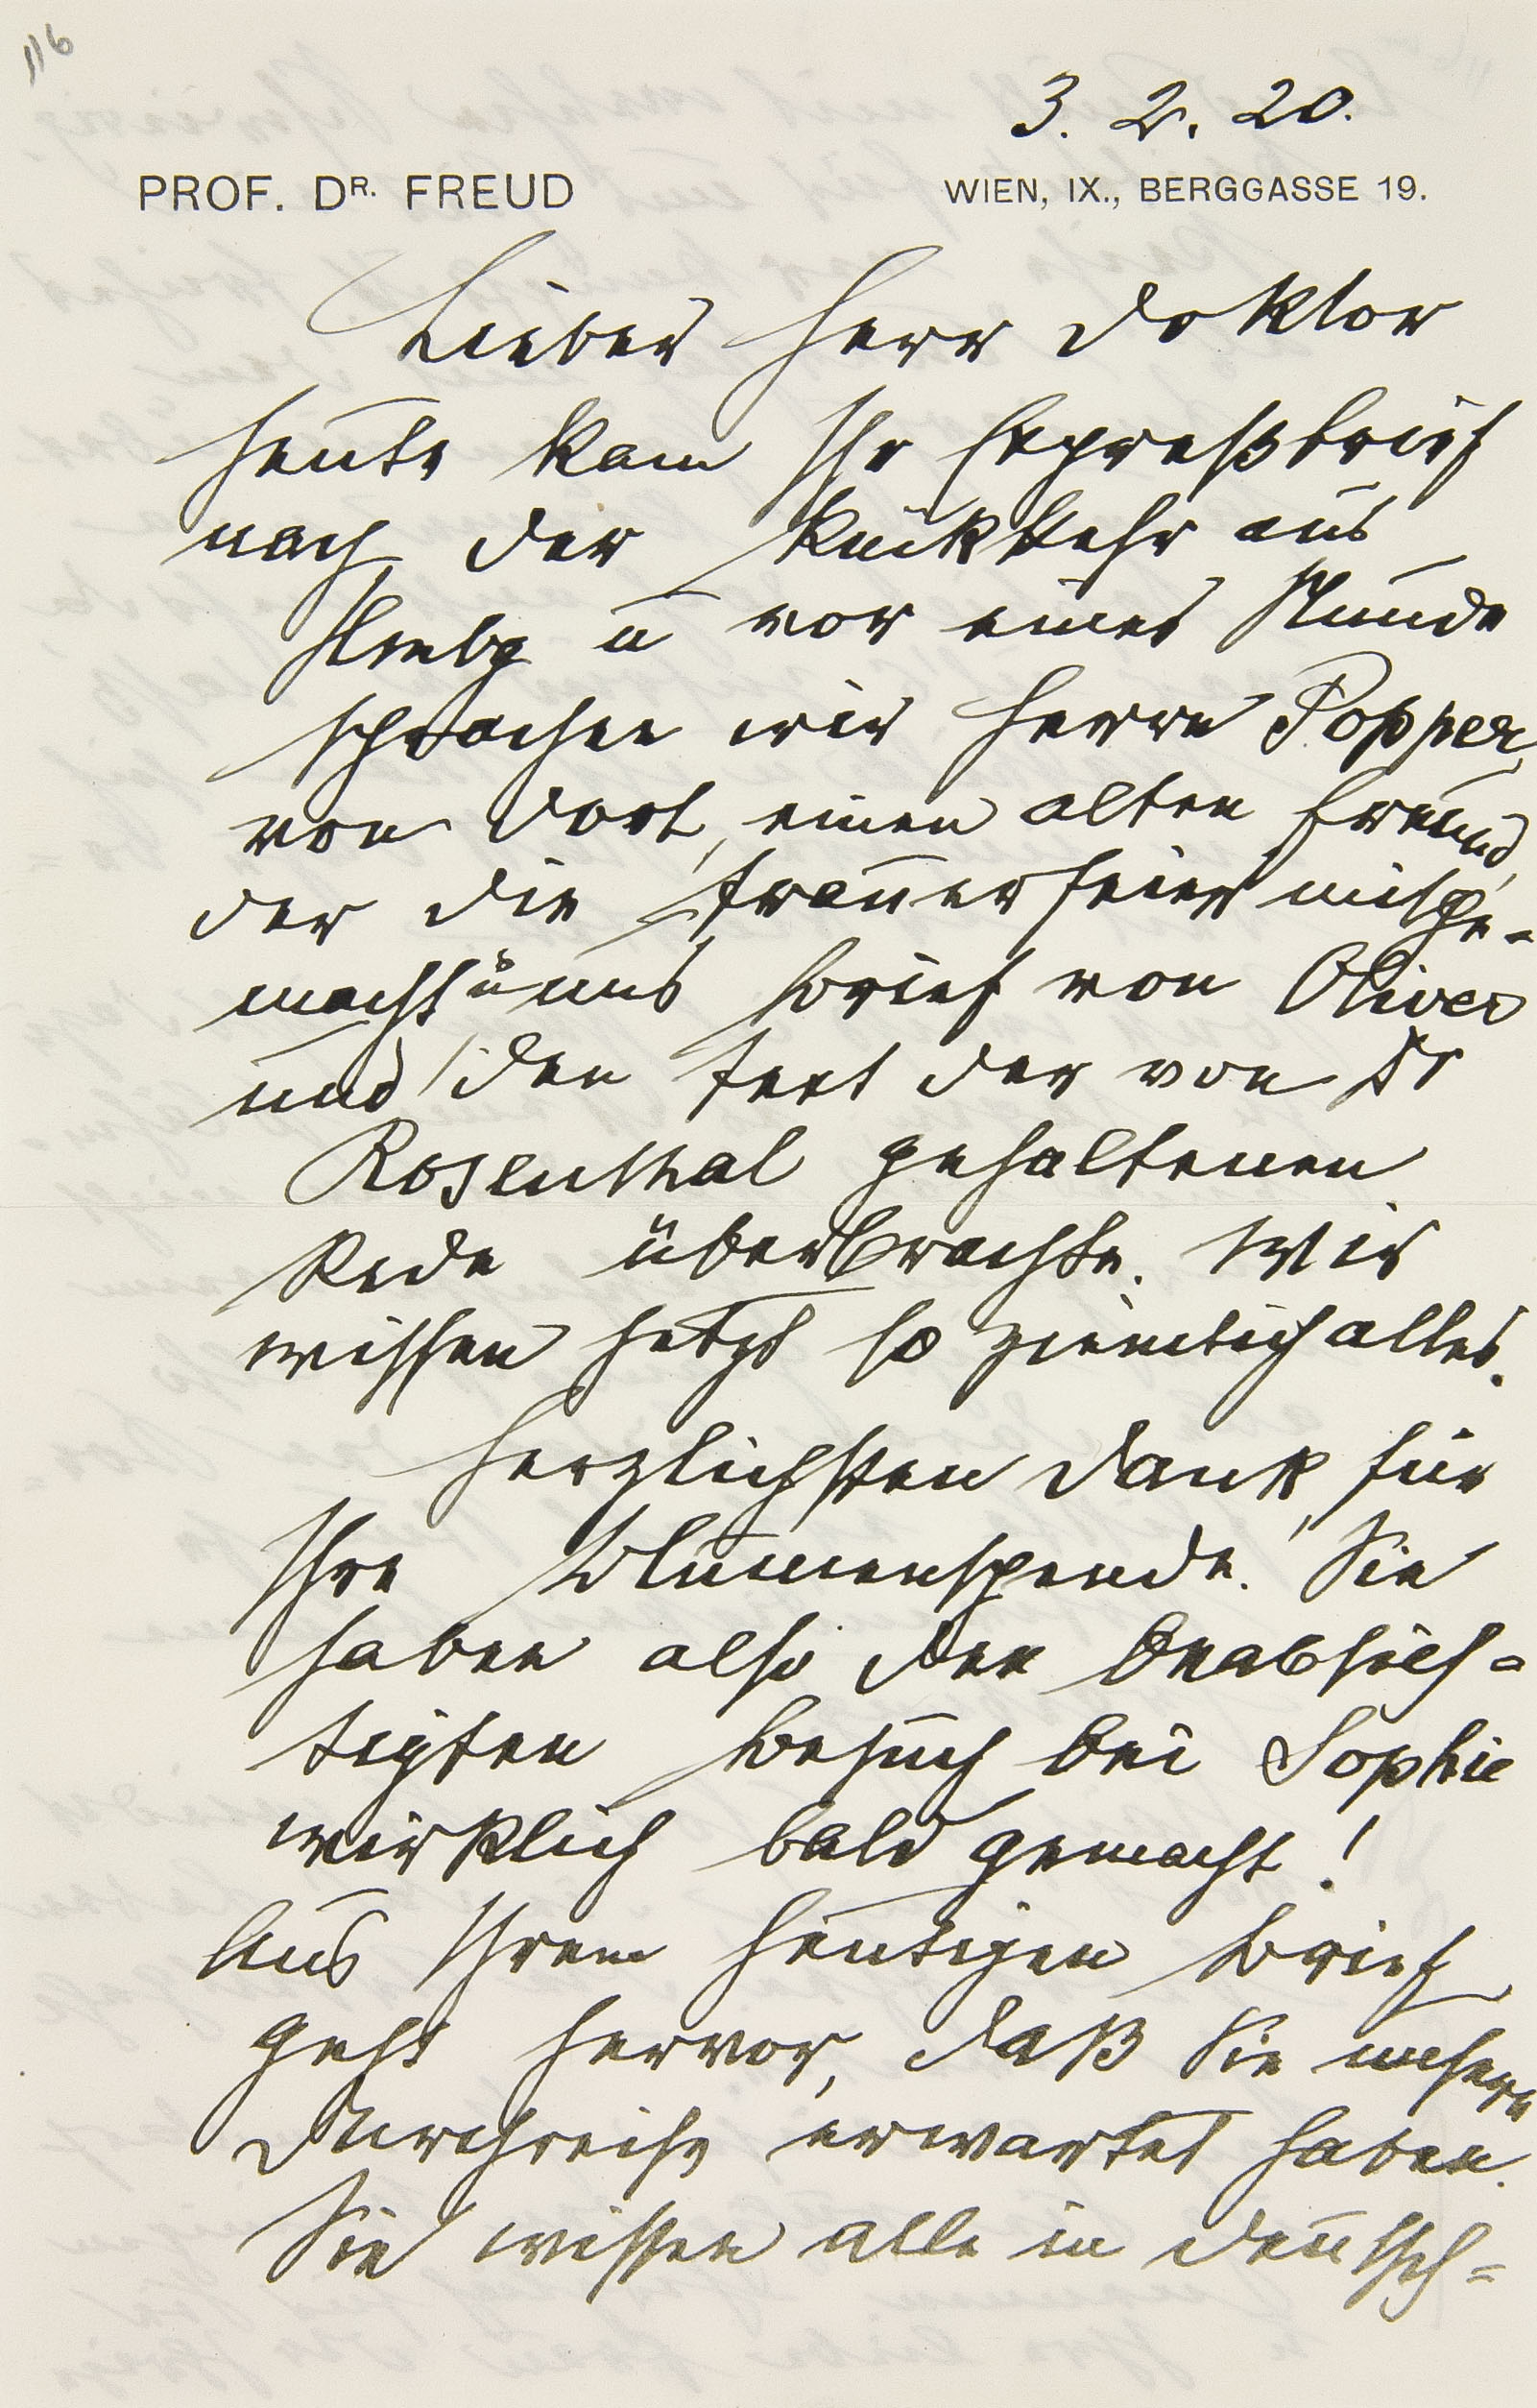 116
3. 2. 20.
PROF. DR. FREUD WIEN, IX., BERGGASSE 19.
Lieber Herr Doktor
Heute kam Ihr Expreßbrief
nach der Rückkehr aus
Hmbg u vor einer Stunde
sprachen wir Herrn Popper
von dort, einen alten Freund,
der die Trauerfeier mitge-
macht u uns Brief von Oliver
und den Text der von Dr
Rosenthal gehaltenen
Rede überbrachte. Wir
wissen jetzt so ziemlich alles.
Herzlichsten Dank für
Ihre Blumenspende. Sie
haben also den beabsich-
tigten Besuch bei Sophie
wirklich bald gemacht!
Aus Ihrem heutigen Brief
geht hervor, daß Sie unsere
Durchreise erwartet haben.
Sie wissen alle in Deutsch-